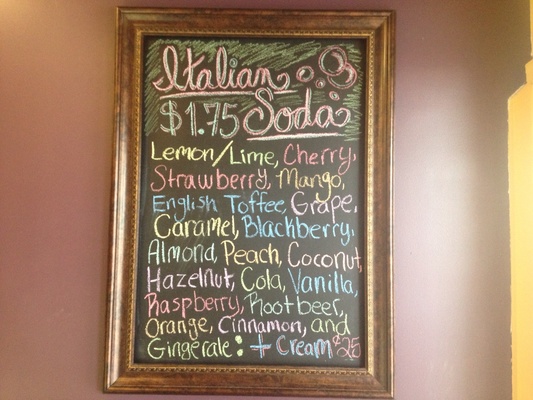 Italian
$1.75 Soda
Lemon/Lime, Cherry,
Strawberry, Mango,
English Toffee, Grape,
Caramel, Blackberry,
Almond, Peach, Coconut,
Hazelnut, Cola, Vanilla,
Raspberry, Rootbeer,
Orange, Cinnamon, and
Gingerale: + Cream $.25